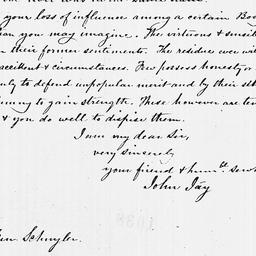 your loss of influence among a certain
you may imagine. The virtuous & sensible
their former sentiments. The residue ever will
accident & circumstances. Few possess honesty or
to defend unpopular merit and by their
to gain strength. These however are
& you do well to dispise them.
I am my dear Sir,
very sincerely
your friend & hum.ble serv
John Jay
Schuyler.